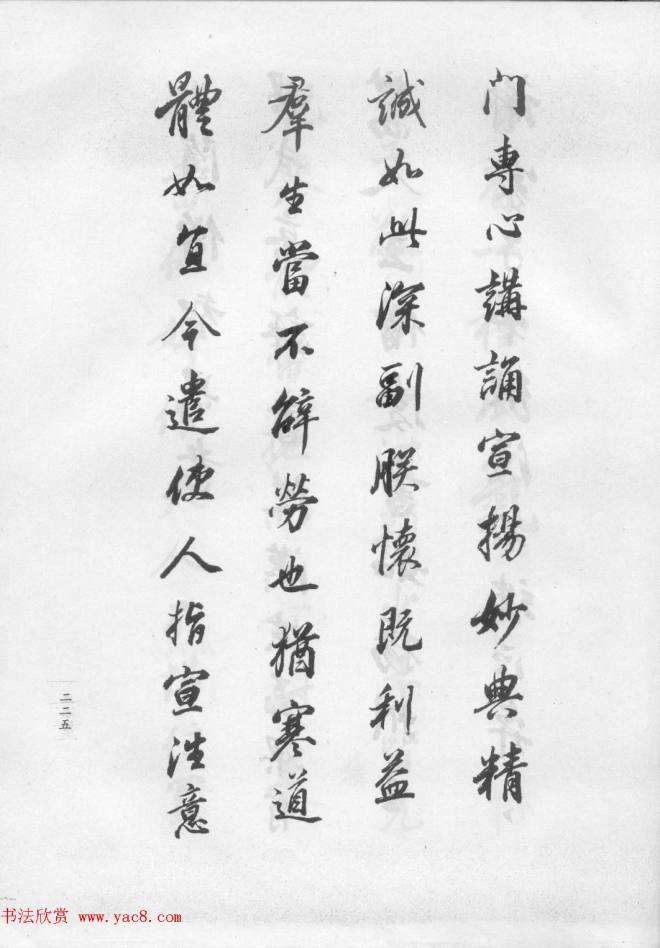 門專心講誦宣揚妙典精
誠如此深副朕懷既利益
羣生當不辭勞也猶寒道
體如宜今遣使人指宣往意
二二五
书法欣赏 www.yac8.com